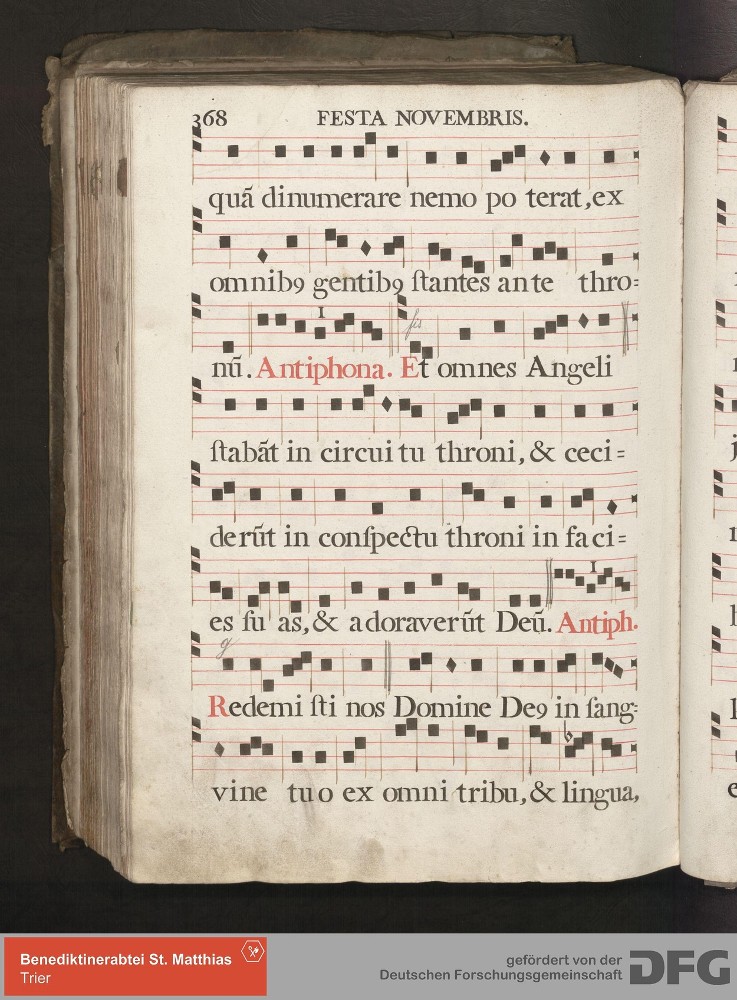 368 FESTA NOVEMBRIS.
quã dinumerare nemo po terat, ex
omnibꝯ gentibꝯ ſtantes ante thro=
1 fis
nũ. Antiphona. Et omnes Angeli
ſtabãt in circui tu throni, & ceci=
derũt in conſpectu throni in faci=
1
es ſu as, & adoraverũt Deũ. Antiph.
g
Redemi ſti nos Domine Deꝯ in ſang=
vine tuo ex omni tribu, & lingua,
Benediktinerabtei St. Matthias
Trier
gefördert von der
Deutschen Forschungsgemeinschaft
DFG